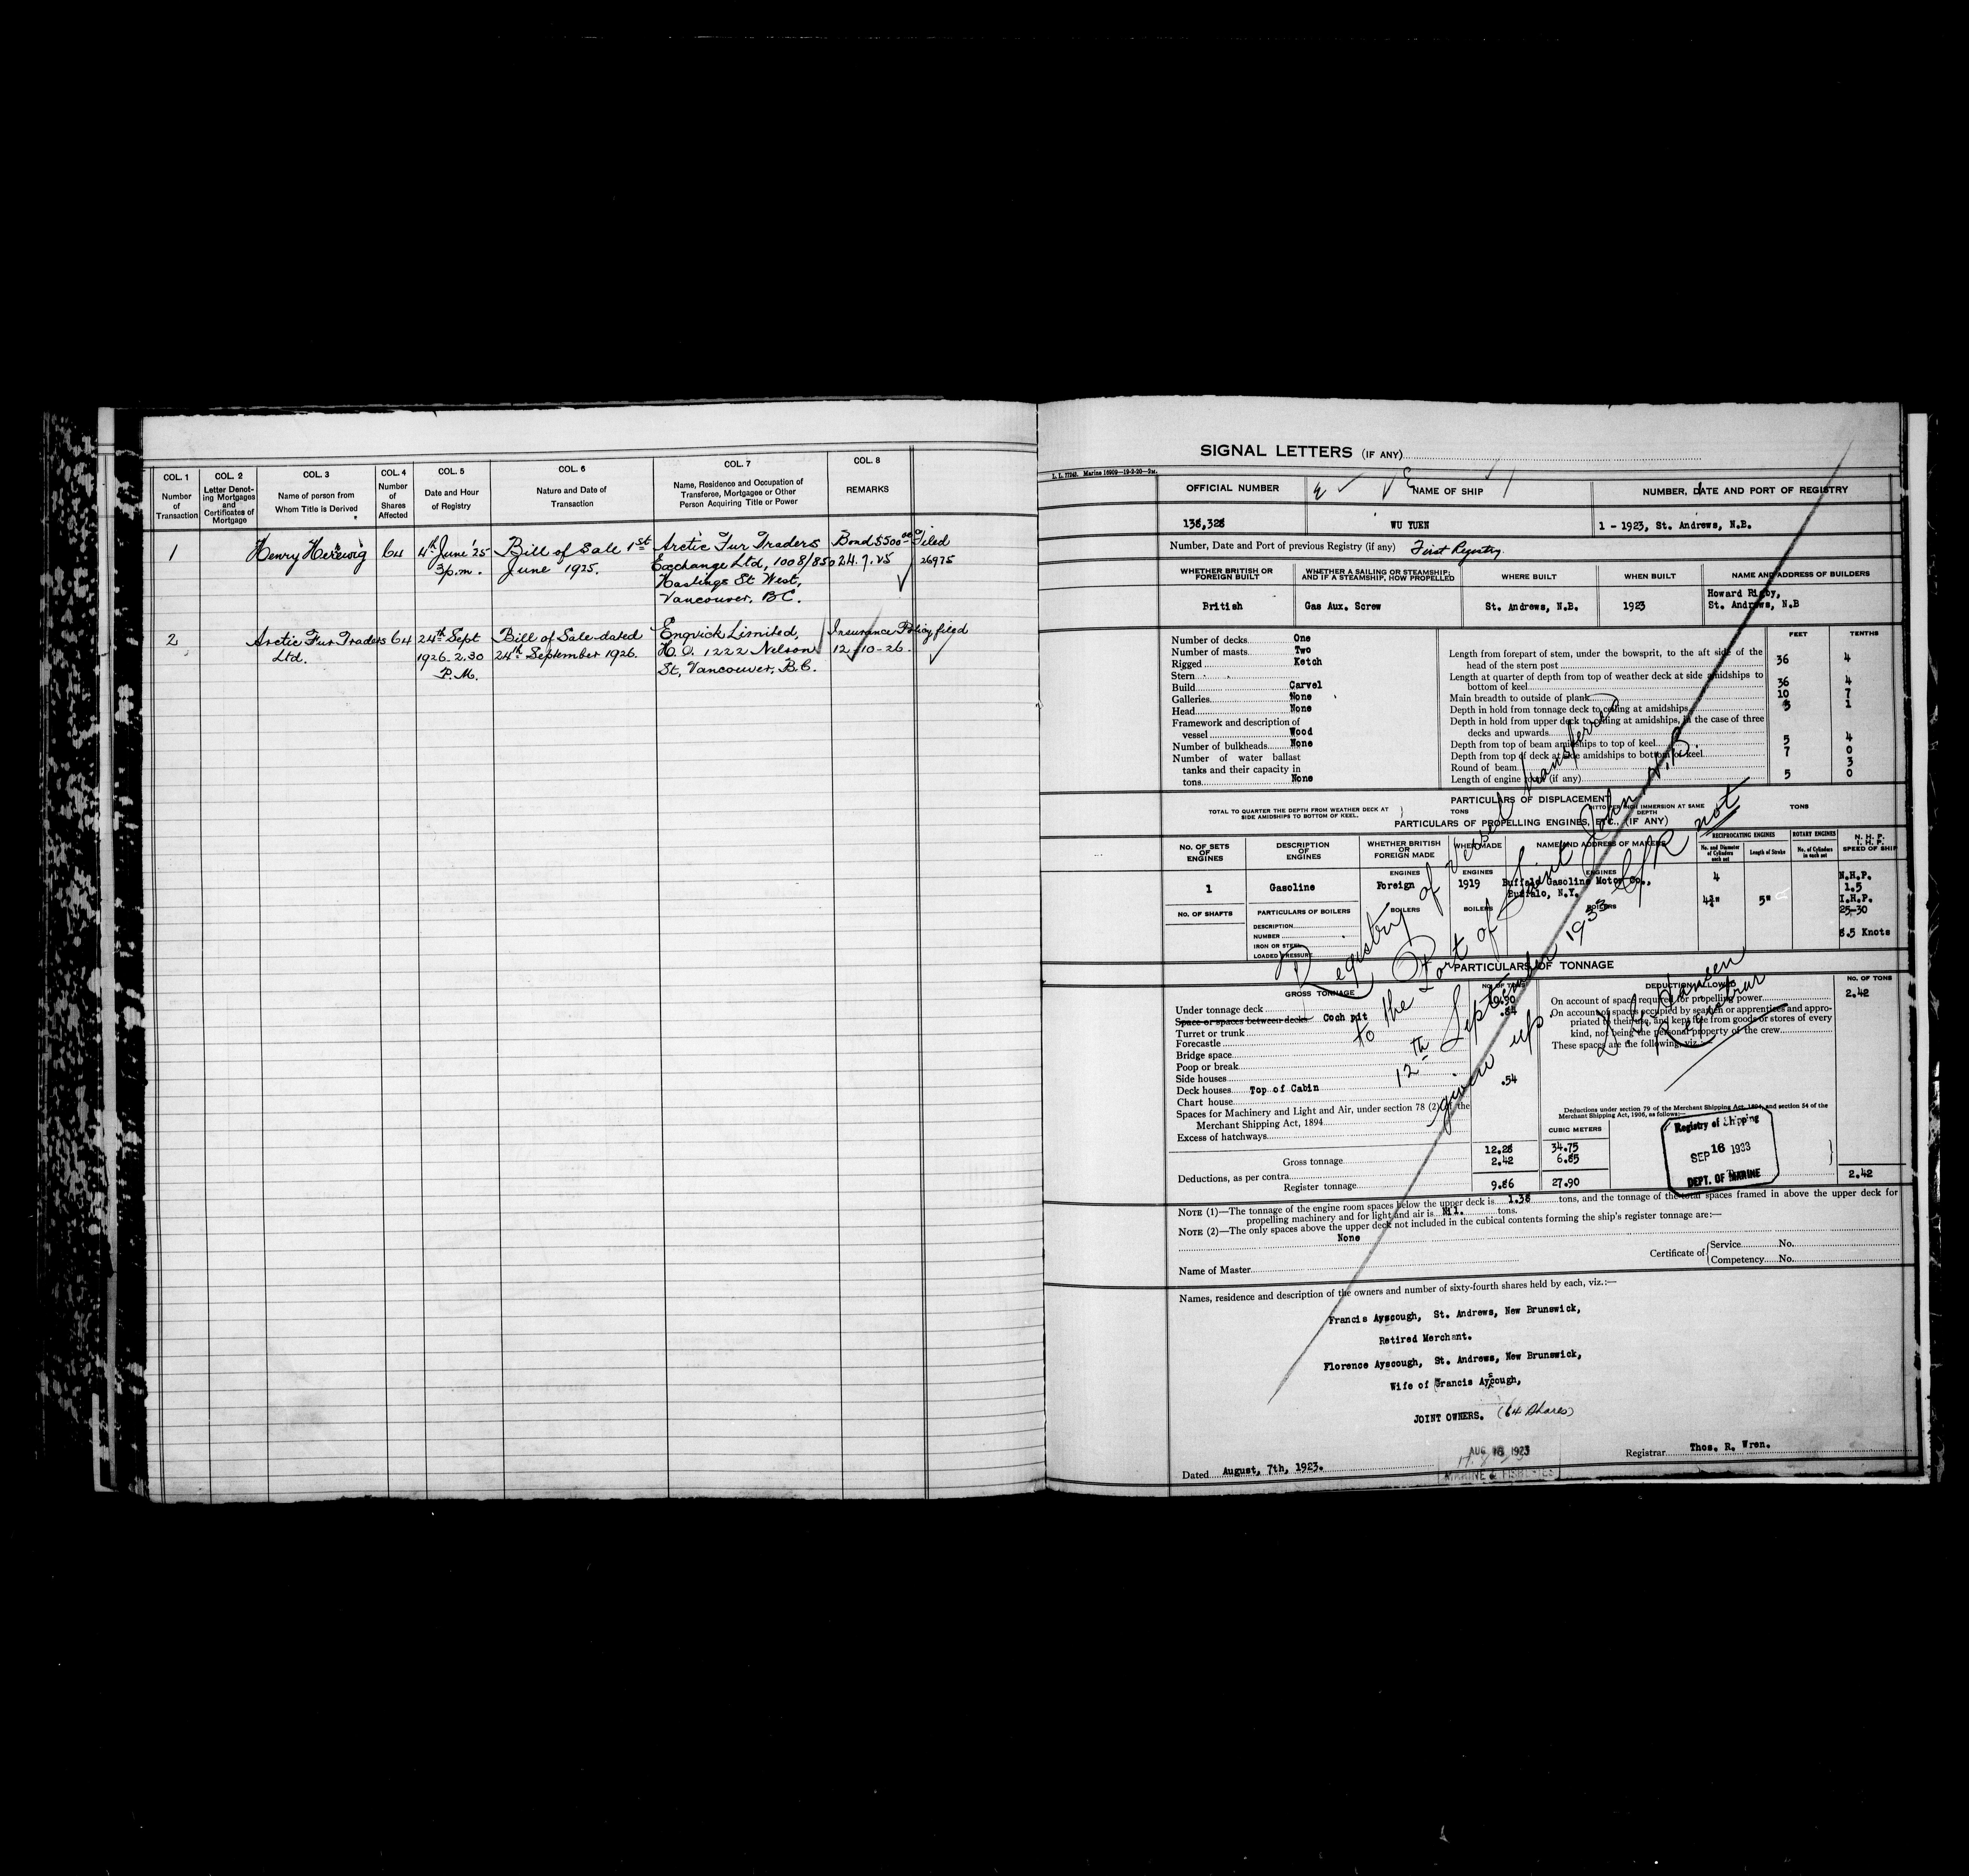 COL. 1
Number
of
Transaction
COL. 2
Letter Denot-
ing Mortgages
and
Certificates of
Mortgage
COL. 3
Name of person from
Whom Title is Derived
COL. 4
Number
of
Shares
Affected
COL. 5
Date and Hour
of Registry
COL. 6
Nature and Date of
Transaction
COL. 7
Name, Residence and Occupation of
Transferee, Mortgagee or Other
Person Acquiring Title or Power
COL. 8
REMARKS
1 Henry Herewig 64 4th June '25 Bill of Sale 1st Arctic Fur Traders Bond $500 00 Filed
3 p.m. June 1925. Exchange Ltd, 1008/850 24.7.25 26975
Hastings St West,
Vancouver, B.C.
2 Arctic Fur Traders 64 24th Sept Bill of Sale dated Engvick Limited, Insurance Policy filed
Ltd. 1926. 2.30 24th September 1926. H.O. 1222 Nelson 12-10-26.
P.M. St, Vancouver, B.C.
SIGNAL LETTERS (IF ANY)
L. L. 77243. Marine 16909—19-2-20—2M.
OFFICIAL NUMBER NAME OF SHIP NUMBER, DATE AND PORT OF REGISTRY
WU YUEN 1 - 1923, St. Andrews, N.B.
Number, Date and Port of previous Registry (if any) First Registry.
WHETHER BRITISH OR
FOREIGN BUILT
WHETHER A SAILING OR STEAMSHIP;
AND IF A STEAMSHIP, HOW PROPELLED
WHERE BUILT
WHEN BUILT
NAME AND ADDRESS OF BUILDERS
British Gas Aux. Screw St. Andrews, N.B. 1923 Howard Rigby,
St. Andrews, N.B
Number of decks One
Number of masts Two
Rigged Ketch
Stern
Build Carvel
Galleries None
Head None
Framework and description of
vessel Wood
Number of bulkheads None
Number of water ballast
tanks and their capacity in
tons None
FEET TENTHS
Length from forepart of stem, under the bowsprit, to the aft side of the
head of the stern post 36 4
Length at quarter of depth from top of weather deck at side amidships to
bottom of keel 36 4
Main breadth to outside of plank 10 7
Depth in hold from tonnage deck to ceiling at amidships 1
Depth in hold from upper deck to ceiling at amidships, in the case of three
decks and upwards
Depth from top of beam amidships to top of keel 5 4
Depth from top of deck at side amidships to bottom of keel 7 0
Round of beam 3
Length of engine room (if any) 5 0
PARTICULARS OF DISPLACEMENT
TOTAL TO QUARTER THE DEPTH FROM WEATHER DECK AT
SIDE AMIDSHIPS TO BOTTOM OF KEEL.
TONS
DITTO PER INCH IMMERSION AT SAME
DEPTH
TONS
PARTICULARS OF PROPELLING ENGINES, ETC., (IF ANY)
NO. OF SETS
OF
ENGINES
DESCRIPTION
OF
ENGINES
WHETHER BRITISH
OR
FOREIGN MADE
WHEN MADE
NAME AND ADDRESS OF MAKERS
RECIPROCATING ENGINES
No. and Diameter
of Cylinders
each set
Length of Stroke
ROTARY ENGINES
No. of Cylinders
in each set
N. H. P.
I. H. P.
SPEED OF SHIP
ENGINES ENGINES ENGINES
1 Gasoline Foreign 1919 Buffalo Gasoline Motor Co.,
Buffalo, N.Y.
4
5"
N.H.P.
1.5
I.H.P.
25-30
NO. OF SHAFTS PARTICULARS OF BOILERS BOILERS BOILERS BOILERS
DESCRIPTION
NUMBER
IRON OR STEEL
LOADED PRESSURE
Knots
PARTICULARS OF TONNAGE
GROSS TONNAGE NO. OF TONS
Under tonnage deck 10.90
Space or spaces between decks Coch pit .84
Turret or trunk
Forecastle
Bridge space
Poop or break
Side houses
Deck houses Top of Cabin .54
Chart house
Spaces for Machinery and Light and Air, under section 78 (2) of the
Merchant Shipping Act, 1894
Excess of hatchways
CUBIC METERS
Gross tonnage 12.28 34.75
Deductions, as per contra 2.42 6.85
Register tonnage 9.86 27.90
DEDUCTIONS ALLOWED NO. OF TONS
On account of space required for propelling power 2.42
On account of spaces occupied by seamen or apprentices and appro-
priated to their use, and kept free from goods or stores of every
kind, not being the personal property of the crew
These spaces are the following, viz.:
Deductions under section 79 of the Merchant Shipping Act, 1894, and section 54 of the
Merchant Shipping Act, 1906, as follows:—
2.42
Registry of Shipping
SEP 16 1933
DEPT. OF MARINE
Registry of Vessel transferred
to the Port of Saint John N.B.
12th September 1933 C/R not
given up
Hansen
Registrar
NOTE (1)—The tonnage of the engine room spaces below the upper deck is 1.38 tons, and the tonnage of the total spaces framed in above the upper deck for
propelling machinery and for light and air is Nil. tons.
NOTE (2)—The only spaces above the upper deck not included in the cubical contents forming the ship's register tonnage are:—
None
Name of Master
Certificate of Service No.
Competency No.
Names, residence and description of the owners and number of sixty-fourth shares held by each, viz.:—
Francis Ayscough, St. Andrews, New Brunswick,
Retired Merchant.
Florence Ayscough, St. Andrews, New Brunswick,
Wife of Francis Ayscough,
JOINT OWNERS. (64 Shares)
AUG 1923
MARINE & FISHERIES
Dated August, 7th, 1923.
Registrar Thos. R. Wren.